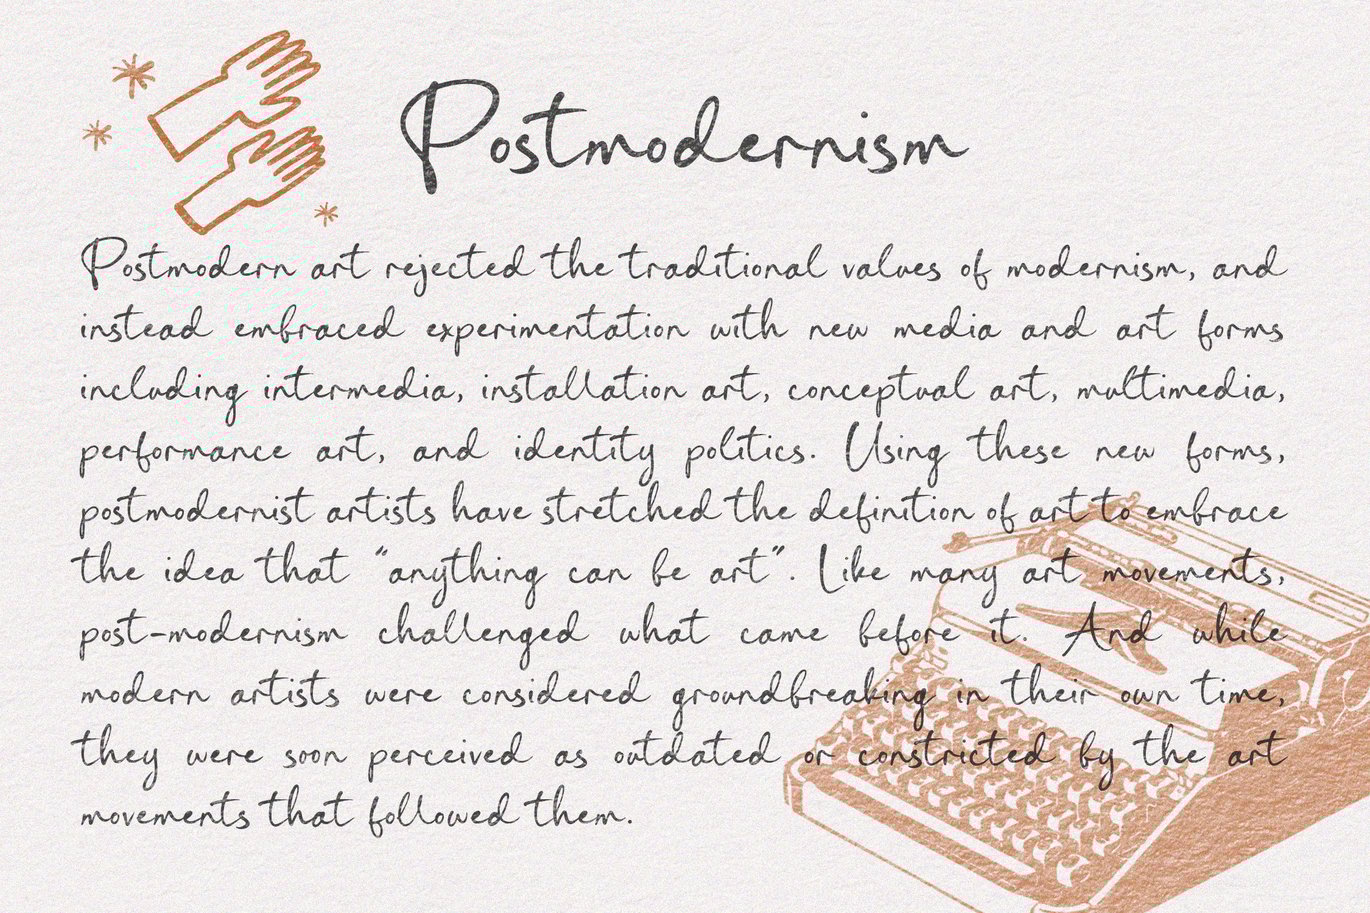 Postmodernism
Postmodern art rejected the traditional values of modernism, and
instead embraced experimentation with new media and art forms
including intermedia, installation art, conceptual art, multimedia,
performance art, and identity politics. Using these new forms,
postmodernist artists have stretched the definition of art to embrace
the idea that “anything can be art”. Like many art movements,
post-modernism challenged what came before it. And while
modern artists were considered groundbreaking in their own time,
they were soon perceived as outdated or constricted by the art
movements that followed them.